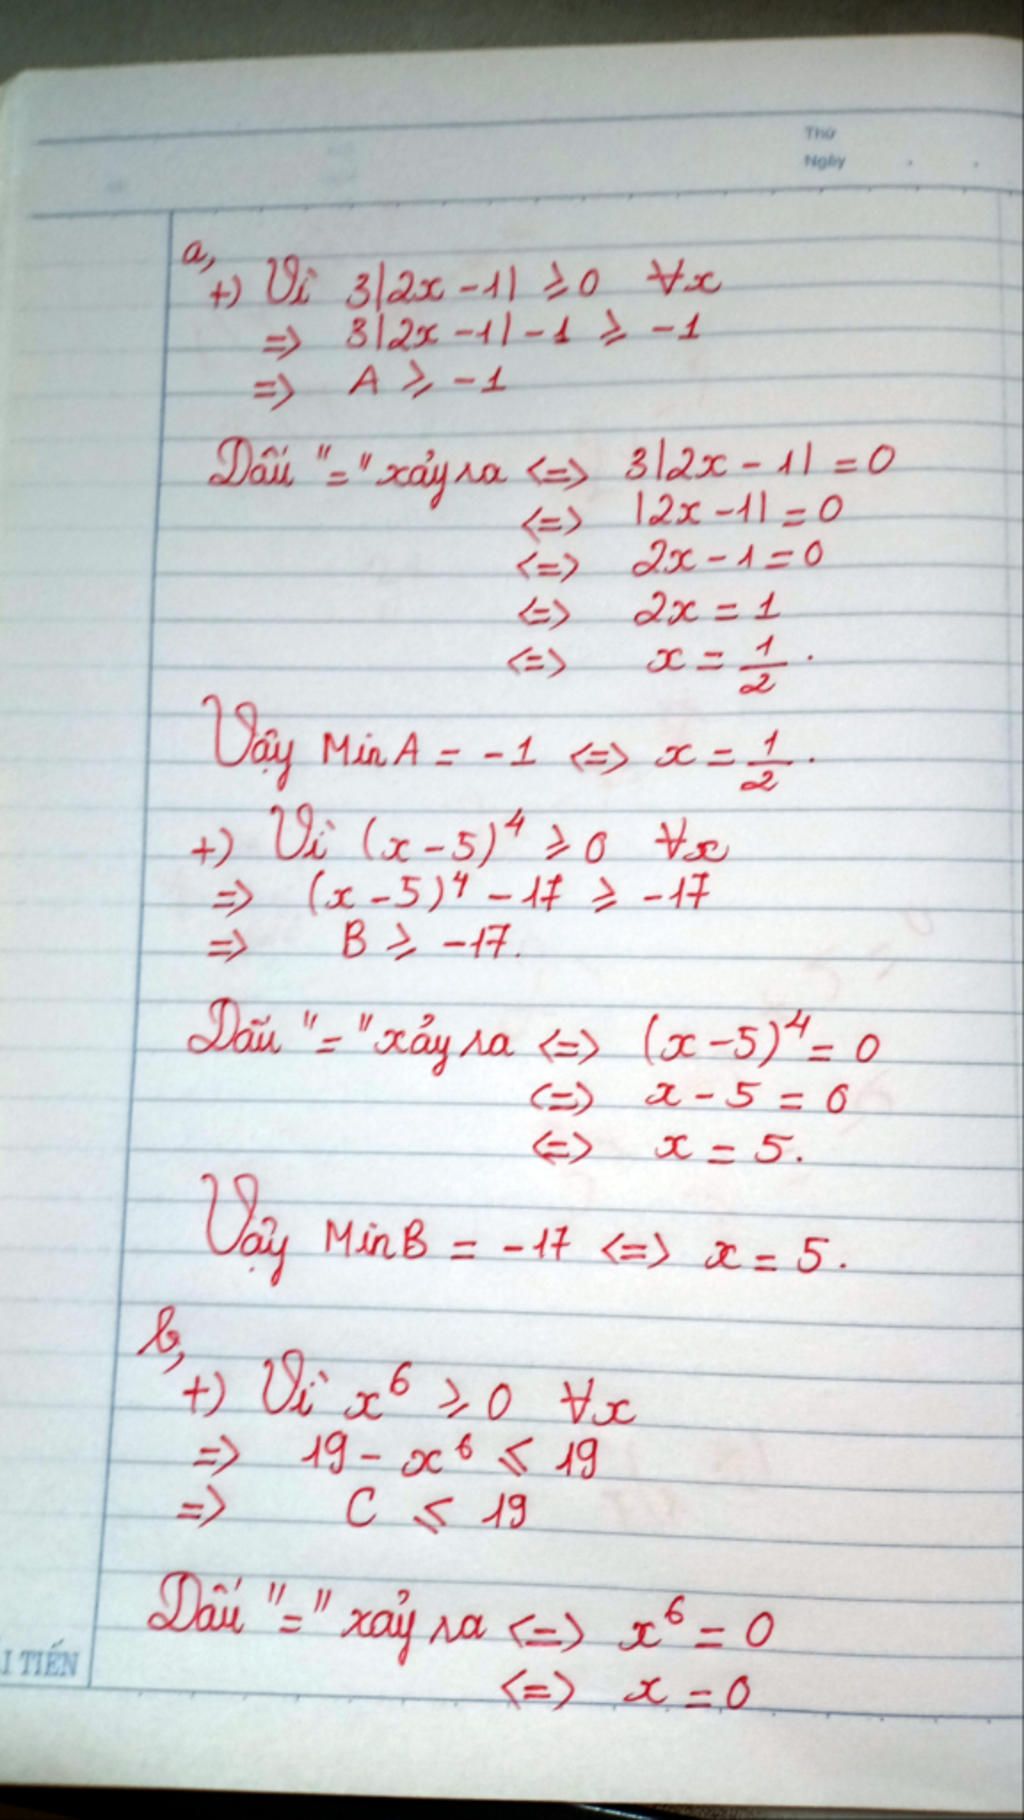 Thứ
Ngày
a,
+) Vì 3|2x - 1| ⩾ 0 ∀x
=> 3|2x - 1| - 1 ⩾ -1
=> A ⩾ -1
Dấu "=" xảy ra <=> 3|2x - 1| = 0
<=> |2x - 1| = 0
<=> 2x - 1 = 0
<=> 2x = 1
<=> x = 1/2.
Vậy Min A = -1 <=> x = 1/2.
+) Vì (x - 5)⁴ ⩾ 0 ∀x
=> (x - 5)⁴ - 17 ⩾ -17
=> B ⩾ -17.
Dấu "=" xảy ra <=> (x - 5)⁴ = 0
<=> x - 5 = 0
<=> x = 5.
Vậy Min B = -17 <=> x = 5.
b,
+) Vì x⁶ ⩾ 0 ∀x
=> 19 - x⁶ ⩽ 19
=> C ⩽ 19
Dấu "=" xảy ra <=> x⁶ = 0
I TIẾN
<=> x = 0